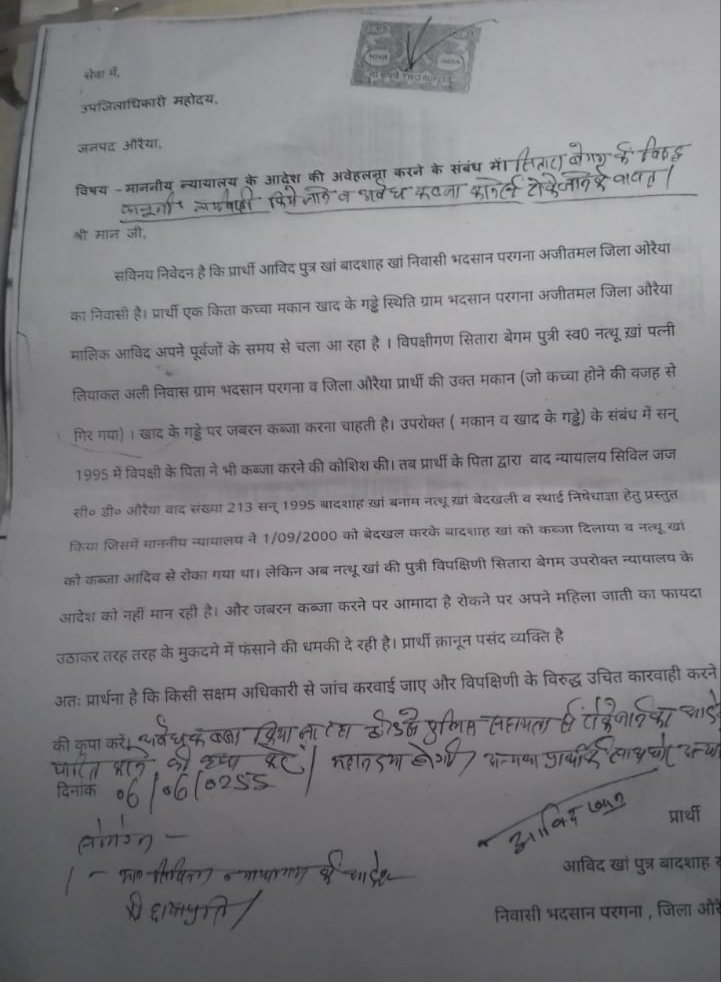 भारत INDIA
दो रुपये TWO RUPEES
सेवा में,
उपजिलाधिकारी महोदय,
जनपद औरैया,
विषय -माननीय न्यायालय के आदेश की अवेहलना करने के संबंध में। सितारा बेगम के विरुद्ध
कानूनी कार्यवाही किये जाने व अवैध कब्जा करने से रोके जाने के बावत।
श्री मान जी,
सविनय निवेदन है कि प्रार्थी आविद पुत्र खां बादशाह खां निवासी भदसान परगना अजीतमल जिला ओरैया
का निवासी है। प्रार्थी एक किता कच्चा मकान खाद के गड्ढे स्थिति ग्राम भदसान परगना अजीतमल जिला औरैया
मालिक आविद अपने पूर्वजों के समय से चला आ रहा है । विपक्षीगण सितारा बेगम पुत्री स्व0 नत्थू ख़ां पत्नी
लियाकत अली निवास ग्राम भदसान परगना व जिला औरैया प्रार्थी की उक्त मकान (जो कच्चा होने की वजह से
गिर गया) । खाद के गड्ढे पर जबरन कब्जा करना चाहती है। उपरोक्त ( मकान व खाद के गड्ढे) के संबंध में सन्
1995 में विपक्षी के पिता ने भी कब्जा करने की कोशिश की। तब प्रार्थी के पिता द्वारा वाद न्यायालय सिविल जज
सी० डी० औरैया वाद संख्या 213 सन् 1995 बादशाह ख़ां बनाम नत्थू ख़ां बेदखली व स्थाई निषेधाज्ञा हेतु प्रस्तुत
किया जिसमें माननीय न्यायालय ने 1/09/2000 को बेदखल करके बादशाह खां को कब्जा दिलाया व नत्थू खां
को कब्जा आदिव से रोका गया था। लेकिन अब नत्थू खां की पुत्री विपक्षिणी सितारा बेगम उपरोक्त न्यायालय के
आदेश को नहीं मान रही है। और जबरन कब्जा करने पर आमादा है रोकने पर अपने महिला जाती का फायदा
उठाकर तरह तरह के मुकदमे में फंसाने की धमकी दे रही है। प्रार्थी क़ानून पसंद व्यक्ति है
अतः प्रार्थना है कि किसी सक्षम अधिकारी से जांच करवाई जाए और विपक्षिणी के विरुद्ध उचित कारवाही करने
की कृपा करें। अवैध कब्जा किया जा रहा है उसे पुलिस सहायता से रोके जाने का आदेश
पारित करने की कृपा करें। महान दया होगी। अन्यथा प्रार्थी के साथ घोर अन्या
दिनांक 06/06/
संलग्न -
1 - मा० सिविल न्यायालय के आदेश
की छायाप्रति।
आविद खान
प्रार्थी
आविद खां पुत्र बादशाह
निवासी भदसान परगना , जिला औरै